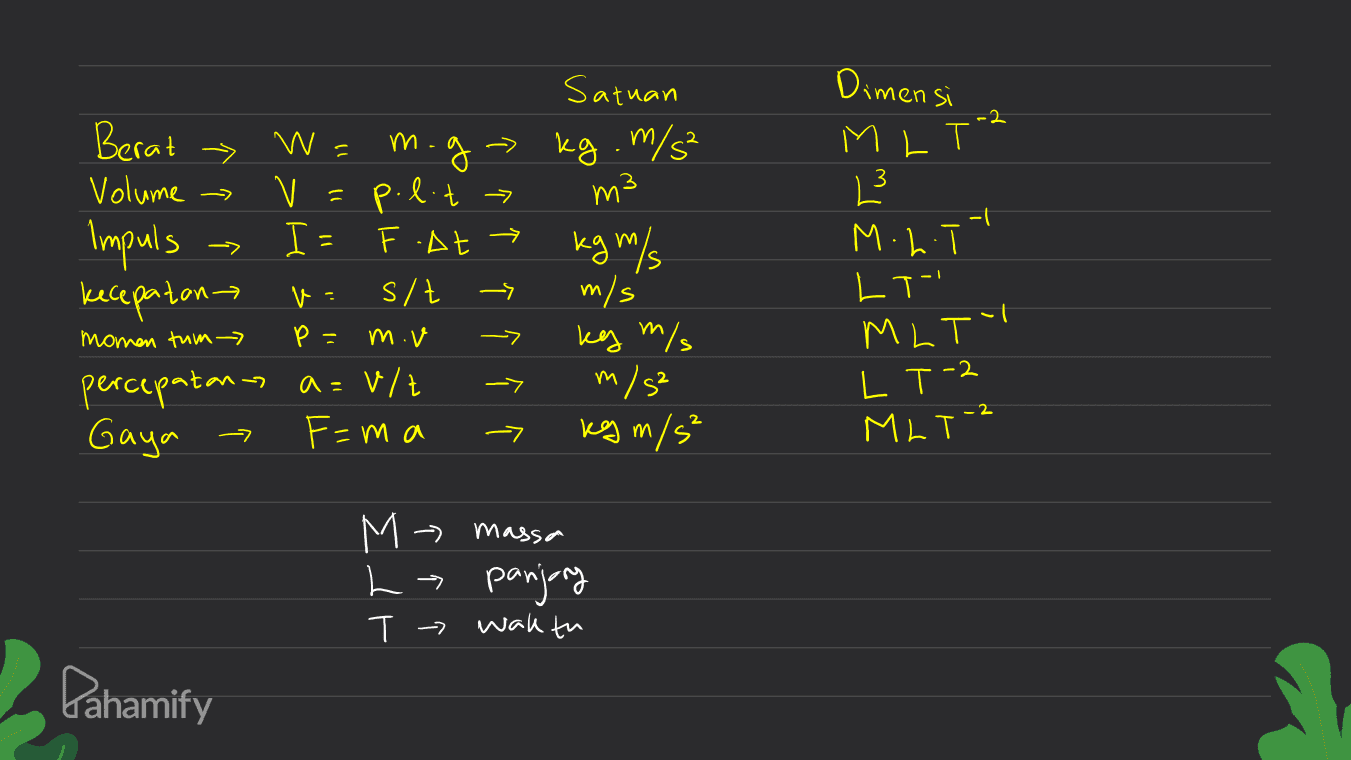 Satuan Dimensi
Berat → W = m.g → kg . m/s² M L T⁻²
Volume → V = p.l.t → m³ L³
Impuls → I = F.Δt → kg m/s M.L.T⁻¹
kecepatan → v = s/t → m/s L T⁻¹
momentum → P = m.v → kg m/s M L T⁻¹
percepatan → a = v/t → m/s² L T⁻²
Gaya → F = m a → kg m/s² M L T⁻²
M → massa
L → panjang
T → waktu
Pahamify